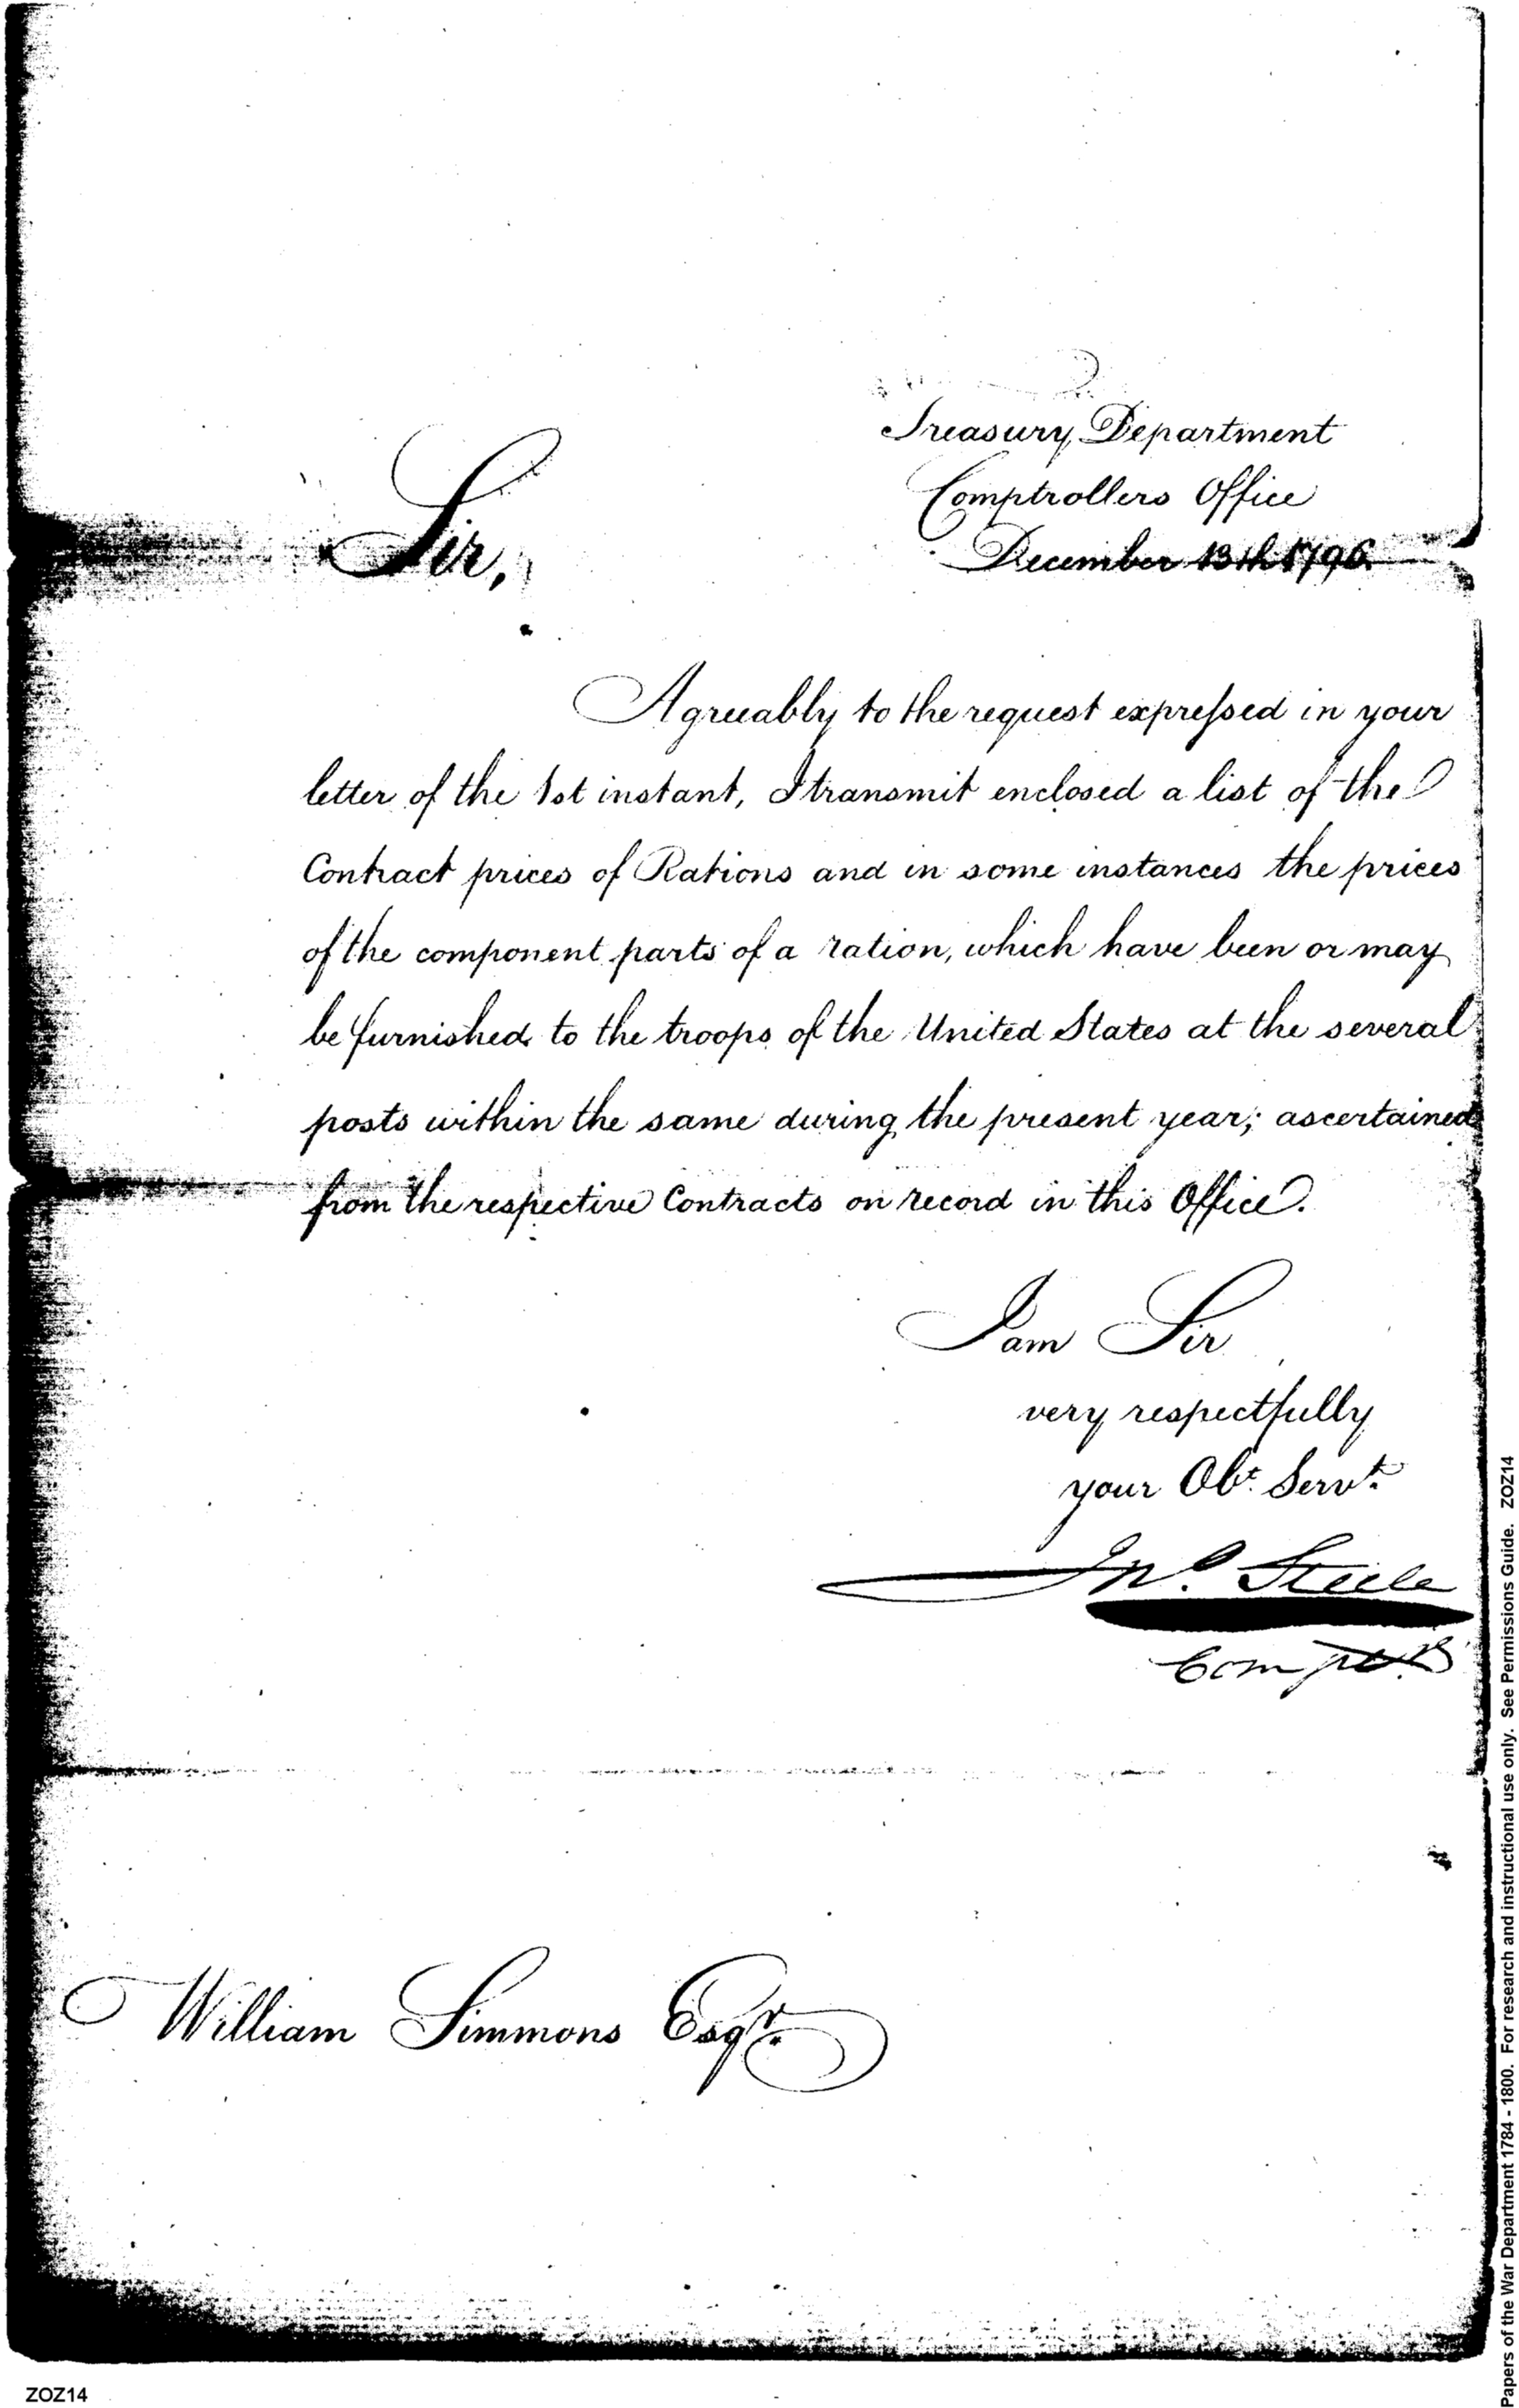 Treasury Department
Comptrollers Office
December 13th 1796.
Sir,
Agreeably to the request expressed in your
letter of the 1st instant, I transmit enclosed a list of the
Contract prices of Rations and in some instances the prices
of the component parts of a ration, which have been or may
be furnished to the troops of the United States at the several
posts within the same during the present year; ascertained
from the respective Contracts on record in this Office.
I am Sir
very respectfully
your Obt. Servt.
Jno. Steele
William Simmons Esqr.
Papers of the War Department 1784 - 1800. For research and instructional use only. See Permissions Guide. ZOZ14
ZOZ14